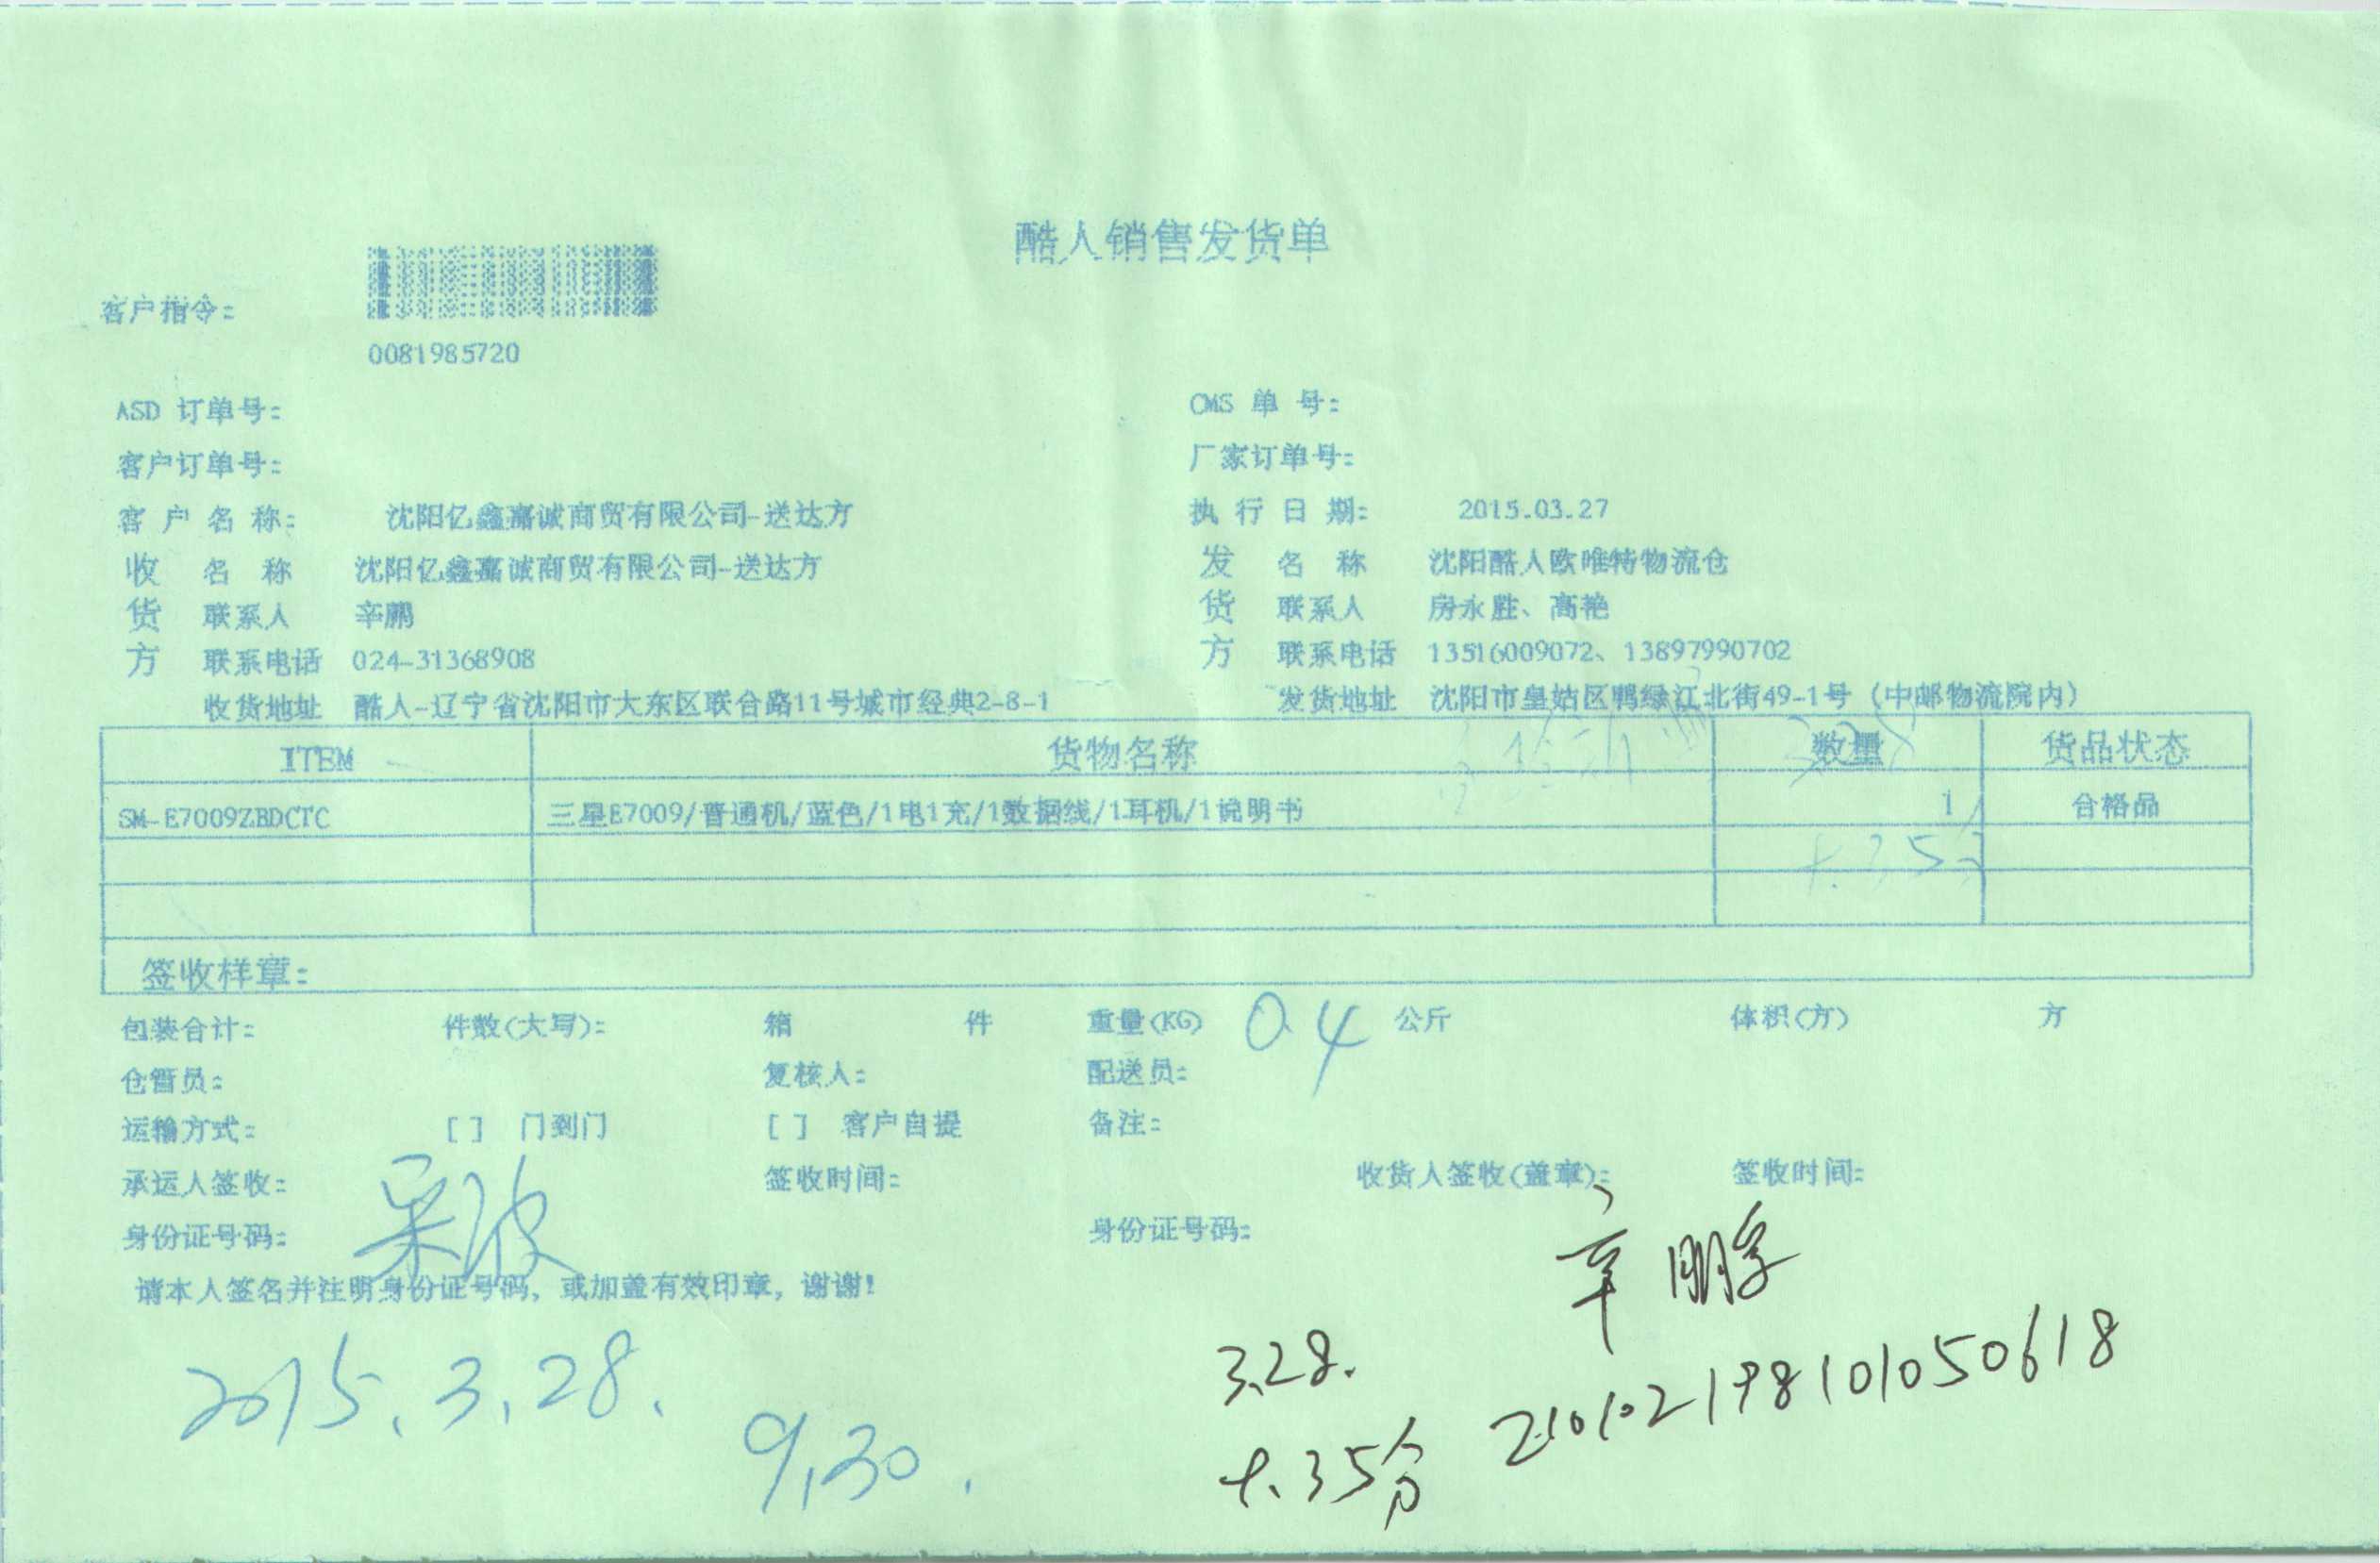 酷人销售发货单
客户指令：
0081985720
ASD 订单号： CMS 单 号：
客户订单号： 厂家订单号：
客 户 名 称： 沈阳亿鑫嘉诚商贸有限公司-送达方 执 行 日 期： 2015.03.27
收 名 称 沈阳亿鑫嘉诚商贸有限公司-送达方 发 名 称 沈阳酷人欧唯特物流仓
货 联系人 辛鹏 货 联系人 房永胜、高艳
方 联系电话 024-31368908 方 联系电话 13516009072、13897990702
收货地址 酷人-辽宁省沈阳市大东区联合路11号城市经典2-8-1 发货地址 沈阳市皇姑区鸭绿江北街49-1号（中邮物流院内）
ITEM 货物名称 数量 货品状态
SM-E7009ZBDCTC 三星E7009/普通机/蓝色/1电1充/1数据线/1耳机/1说明书 1 合格品
签收样章：
包装合计： 件数(大写)： 箱 件 重量(KG) 0.4 公斤 体积(方) 方
仓管员： 复核人： 配送员：
运输方式： [ ] 门到门 [ ] 客户自提 备注：
承运人签收： 签收时间： 收货人签收(盖章)： 签收时间：
身份证号码： 身份证号码： 辛鹏
请本人签名并注明身份证号码，或加盖有效印章，谢谢！
2015.3.28. 3.28. 210102198101050618
9.30. 9.35分